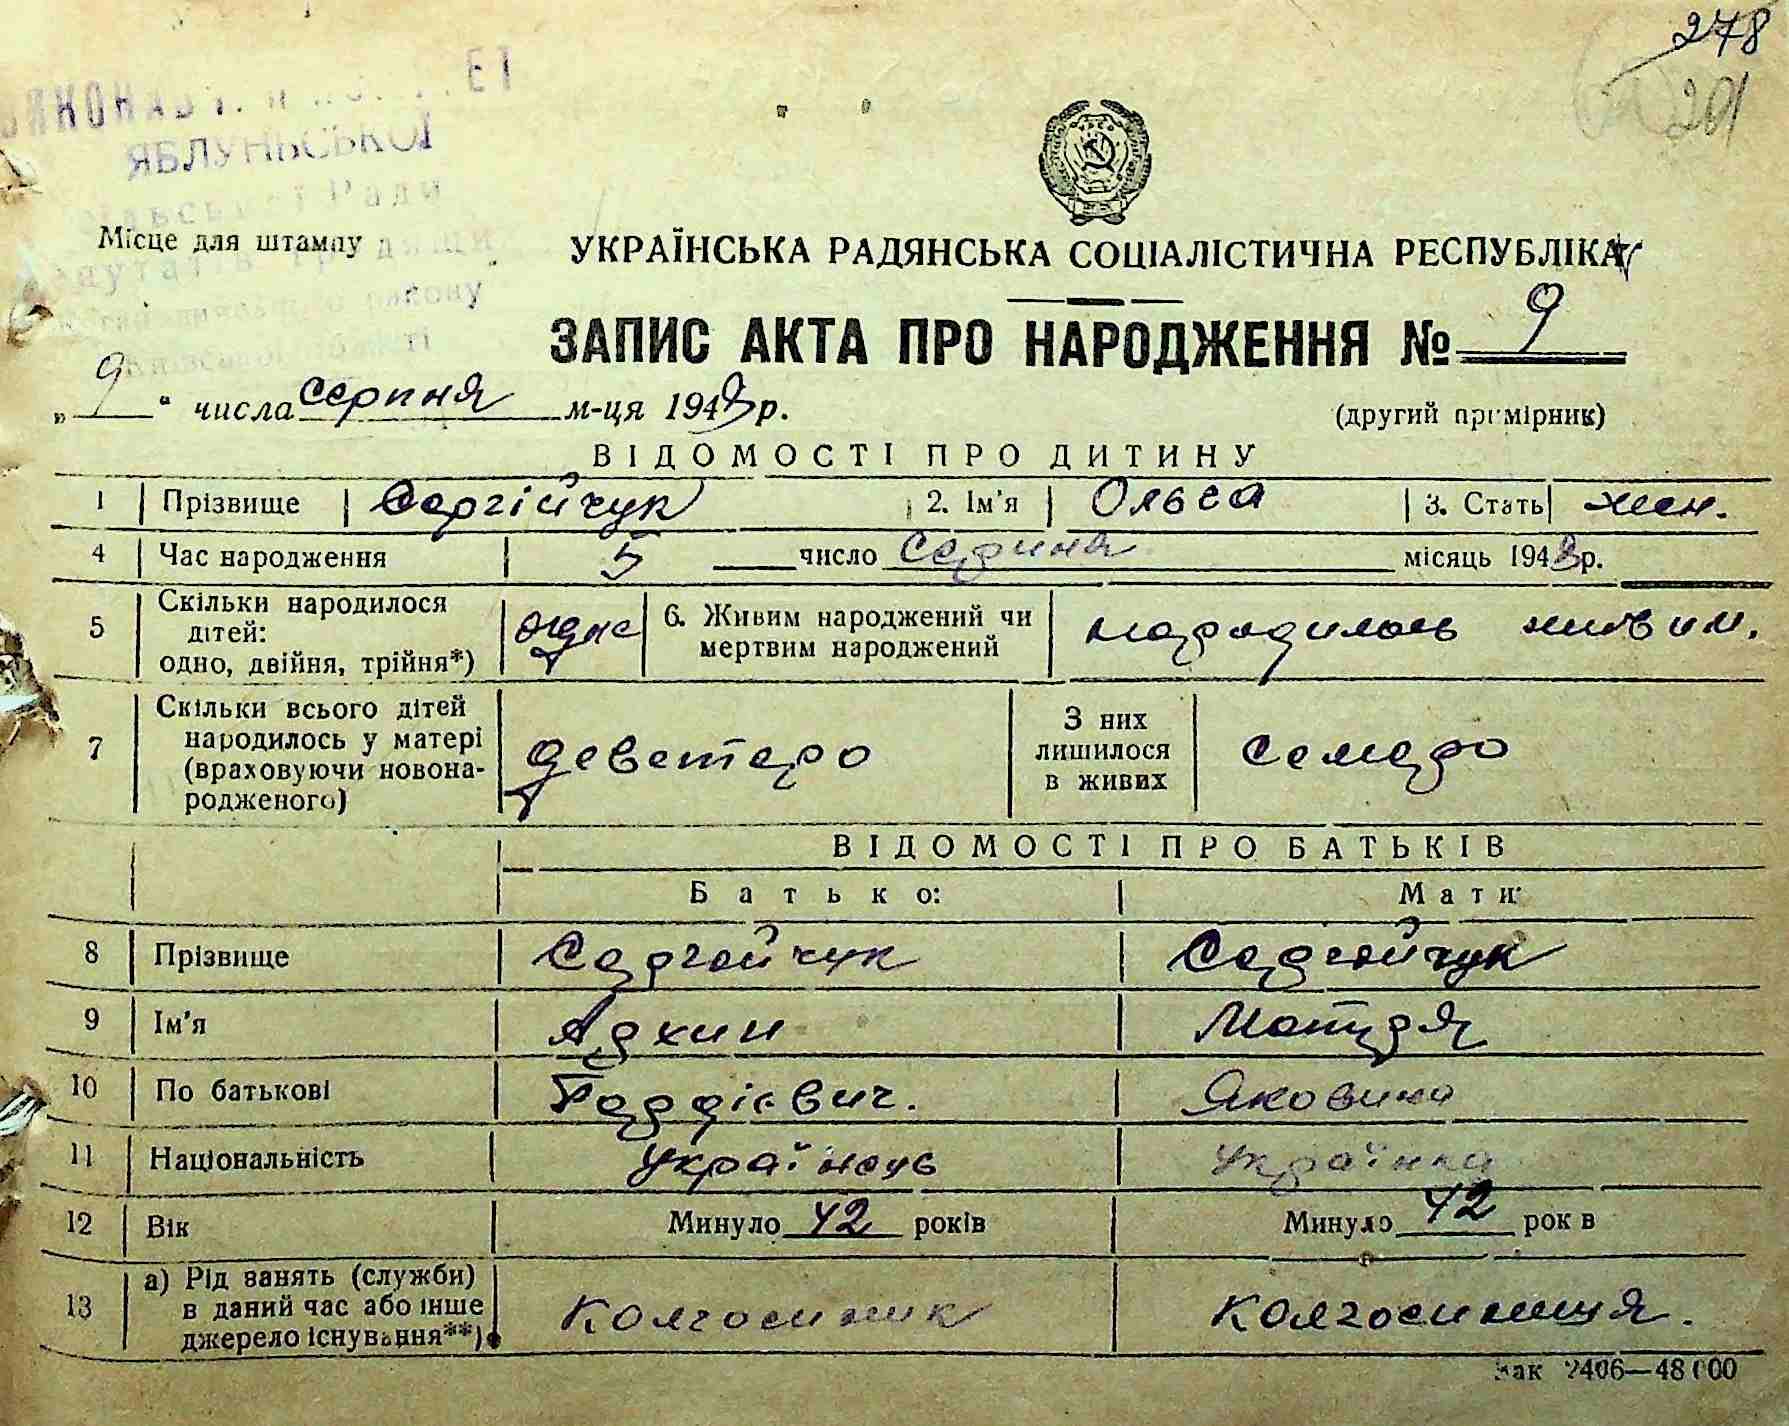 278
201
ЯБЛУНЬСЬКОЇ
Ради
Місце для штампу
УКРАЇНСЬКА РАДЯНСЬКА СОЦІАЛІСТИЧНА РЕСПУБЛІКА
ЗАПИС АКТА ПРО НАРОДЖЕННЯ № 9
„ 9 “ числа серпня м-ця 1943 р.
(другий примірник)
ВІДОМОСТІ ПРО ДИТИНУ
1 Прізвище Сергійчук 2. Ім'я Ольга 3. Стать жен.
4 Час народження 5 число Серпня місяць 1943 р.
5 Скільки народилося дітей: одно, двійня, трійня*) одне 6. Живим народжений чи мертвим народжений народилось живим.
7 Скільки всього дітей народилось у матері (враховуючи новонародженого) деветеро З них лишилося в живих семеро
ВІДОМОСТІ ПРО БАТЬКІВ
Батько: Мати:
8 Прізвище Сергейчук Сергейчук
9 Ім'я Архип Мотря
10 По батькові Гордієвич. Яковина
11 Національність Українець Українка
12 Вік Минуло 42 років Минуло 42 років
13 а) Рід занять (служби) в даний час або інше джерело існування**) Колгоспник Колгоспниця.
Зак 2406—48000